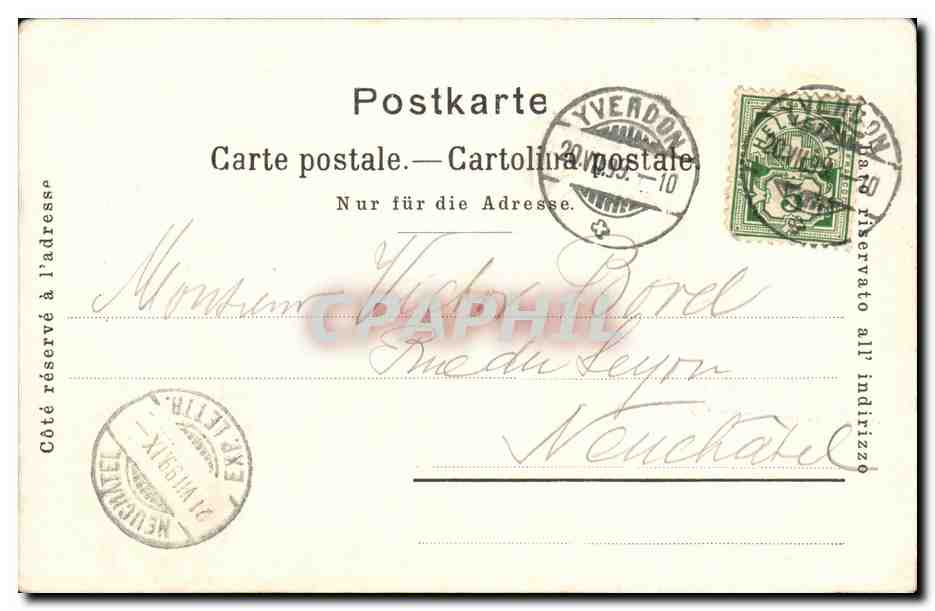 Postkarte
Carte postale.—Cartolina postale.
Nur für die Adresse.
Côté réservé à l'adresse
Lato riservato all' indirizzo
YVERDON
20.VII.99.–10
YVERDON
20.VII.99.–10
HELVETIA
5
Monsieur Victor Borel
Rue du Seyon
Neuchâtel
CPAPHIL
NEUCHATEL
21.VII.99.IX–
EXP. LETTR.